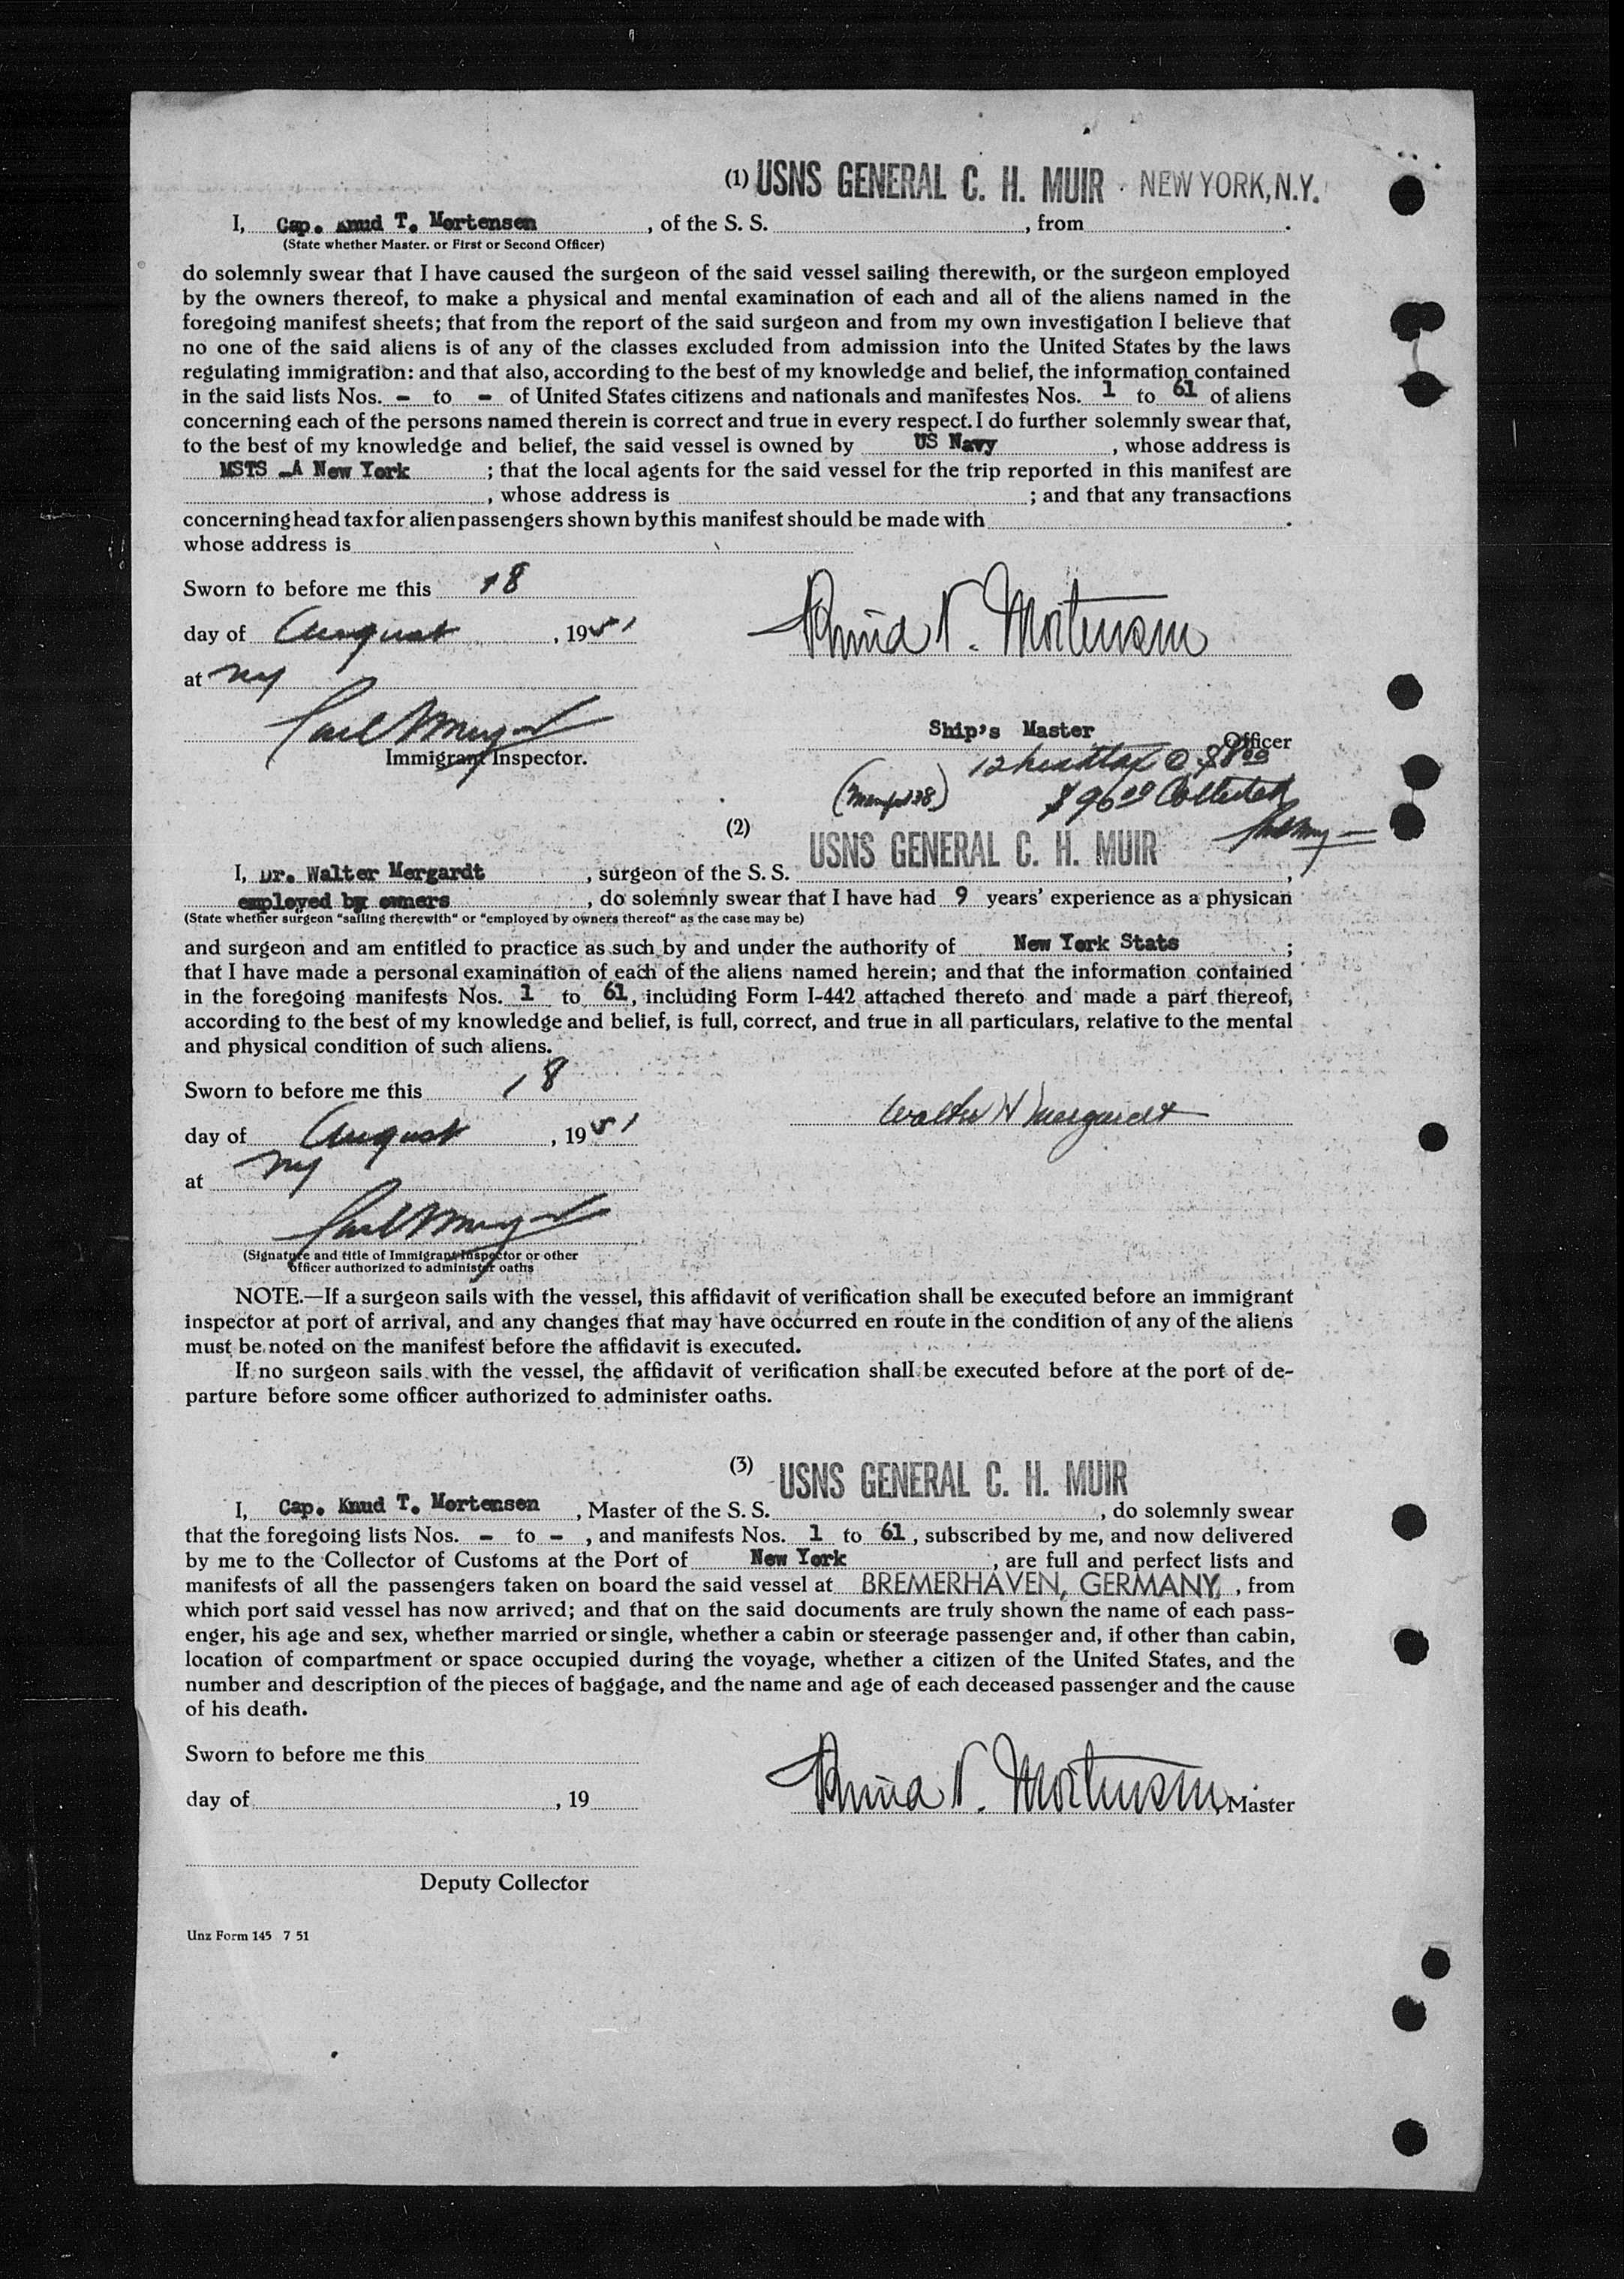 (1) USNS GENERAL C. H. MUIR NEW YORK, N.Y.
I, Cap. Knud T. Mortensen, of the S. S. , from .
(State whether Master. or First or Second Officer)
do solemnly swear that I have caused the surgeon of the said vessel sailing therewith, or the surgeon employed
by the owners thereof, to make a physical and mental examination of each and all of the aliens named in the
foregoing manifest sheets; that from the report of the said surgeon and from my own investigation I believe that
no one of the said aliens is of any of the classes excluded from admission into the United States by the laws
regulating immigration: and that also, according to the best of my knowledge and belief, the information contained
in the said lists Nos. - to - of United States citizens and nationals and manifestes Nos. 1 to 61 of aliens
concerning each of the persons named therein is correct and true in every respect. I do further solemnly swear that,
to the best of my knowledge and belief, the said vessel is owned by US Navy, whose address is
MSTS -A New York ; that the local agents for the said vessel for the trip reported in this manifest are
, whose address is ; and that any transactions
concerning head tax for alien passengers shown by this manifest should be made with .
whose address is
Sworn to before me this 18
day of August, 1951
at NY
Knud T. Mortensen
Immigrant Inspector.
Ship's Master Officer
12 headtax @ $8.00
(Manifest 28) $96.00 Collected
(2) USNS GENERAL C. H. MUIR
I, Dr. Walter Mergardt, surgeon of the S. S. ,
employed by owners, do solemnly swear that I have had 9 years' experience as a physican
(State whether surgeon "sailing therewith" or "employed by owners thereof" as the case may be)
and surgeon and am entitled to practice as such by and under the authority of New York Stats ;
that I have made a personal examination of each of the aliens named herein; and that the information contained
in the foregoing manifests Nos. 1 to 61, including Form I-442 attached thereto and made a part thereof,
according to the best of my knowledge and belief, is full, correct, and true in all particulars, relative to the mental
and physical condition of such aliens.
Sworn to before me this 18
day of August, 1951
at NY
Walter H Mergardt
(Signature and title of Immigrant Inspector or other
officer authorized to administer oaths
NOTE.—If a surgeon sails with the vessel, this affidavit of verification shall be executed before an immigrant
inspector at port of arrival, and any changes that may have occurred en route in the condition of any of the aliens
must be noted on the manifest before the affidavit is executed.
If no surgeon sails with the vessel, the affidavit of verification shall be executed before at the port of de-
parture before some officer authorized to administer oaths.
(3) USNS GENERAL C. H. MUIR
I, Cap. Knud T. Mortensen, Master of the S. S. , do solemnly swear
that the foregoing lists Nos. - to -, and manifests Nos. 1 to 61, subscribed by me, and now delivered
by me to the Collector of Customs at the Port of New York, are full and perfect lists and
manifests of all the passengers taken on board the said vessel at BREMERHAVEN, GERMANY, from
which port said vessel has now arrived; and that on the said documents are truly shown the name of each pass-
enger, his age and sex, whether married or single, whether a cabin or steerage passenger and, if other than cabin,
location of compartment or space occupied during the voyage, whether a citizen of the United States, and the
number and description of the pieces of baggage, and the name and age of each deceased passenger and the cause
of his death.
Sworn to before me this
day of , 19
Knud T. Mortensen Master
Deputy Collector
Unz Form 145 7 51